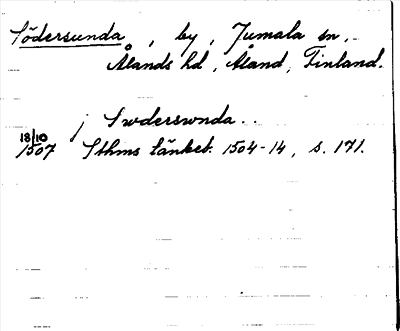 Södersunda, by, Jumala sn,
Ålands hd, Åland, Finland.
j Swderswnda..
18/10
1507 Sthms tänkeb. 1504-14, s. 171.